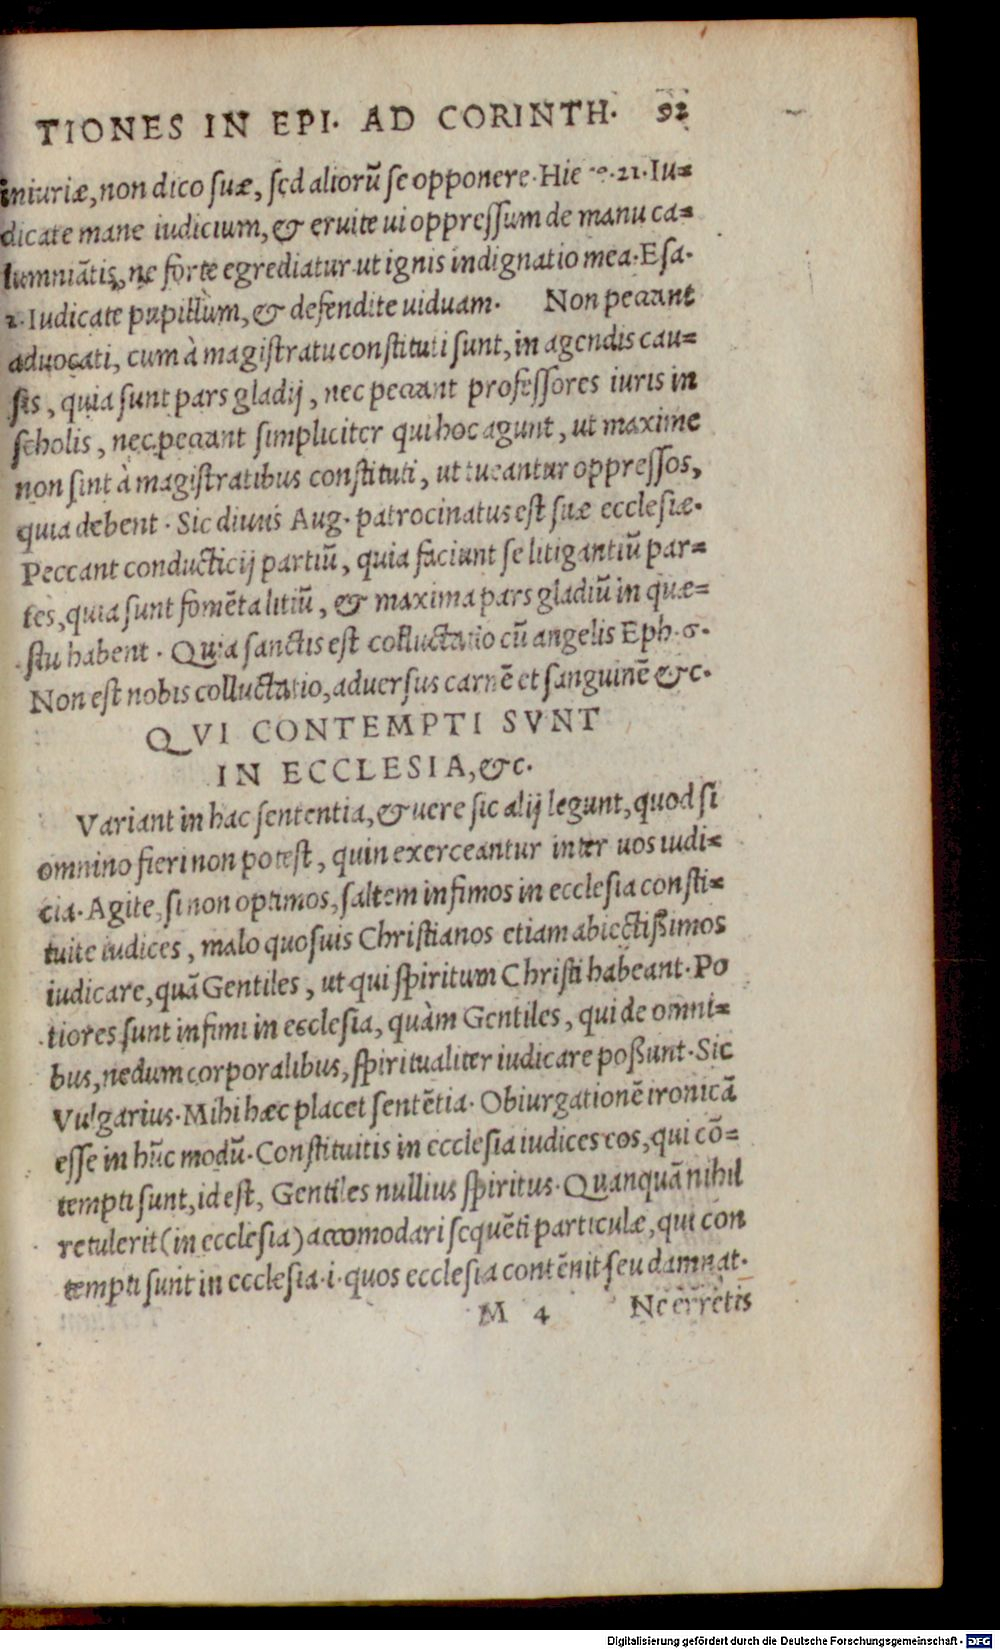 TIONES IN EPI. AD CORINTH. 92
iniuriæ, non dico suæ, sed aliorũ se opponere. Hie 21. Iu=
dicate mane iudicium, & eruite ui oppressum de manu ca=
lumniãtis, ne forte egrediatur ut ignis indignatio mea. Esa.
2. Iudicate pupillum, & defendite uiduam. Non peccant
aduocati, cum à magistratu constituti sunt, in agendis cau=
sis, quia sunt pars gladij, nec peccant professores iuris in
scholis, nec peccant simpliciter qui hoc agunt, ut maxime
non sint à magistratibus constituti, ut tueantur oppressos,
quia debent. Sic diuus Aug. patrocinatus est suæ ecclesiæ.
Peccant conducticij partiũ, quia faciunt se litigantiũ par=
tes, quia sunt fomẽta litiũ, & maxima pars gladiũ in quæ=
stu habent. Quia sanctis est colluctatio cũ angelis Eph. 6.
Non est nobis colluctatio, aduersus carnẽ et sanguinẽ &c.
QVI CONTEMPTI SVNT
IN ECCLESIA, &c.
Variant in hac sententia, & uere sic alij legunt, quod si
omnino fieri non potest, quin exerceantur inter uos iudi=
cia. Agite, si non optimos, saltem infimos in ecclesia consti=
tuite iudices, malo quosuis Christianos etiam abiectißimos
iudicare, quã Gentiles, ut qui spiritum Christi habeant. Po
tiores sunt infimi in ecclesia, quàm Gentiles, qui de omni=
bus, nedum corporalibus, spiritualiter iudicare poßunt. Sic
Vulgarius. Mihi hæc placet sentẽtia. Obiurgationẽ ironicã
esse in hũc modũ. Constituitis in ecclesia iudices eos, qui cõ=
tempti sunt, id est, Gentiles nullius spiritus. Quanquã nihil
retulerit (in ecclesia) accomodari sequẽti particulæ, qui con
tempti sunt in ecclesia .i. quos ecclesia contẽnit seu damnat.
M 4 Ne erretis
Digitalisierung gefördert durch die Deutsche Forschungsgemeinschaft - DFG